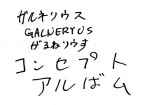 ガルネリウス
GALNERYUS
がるねりうす
コンセプト
アルばム